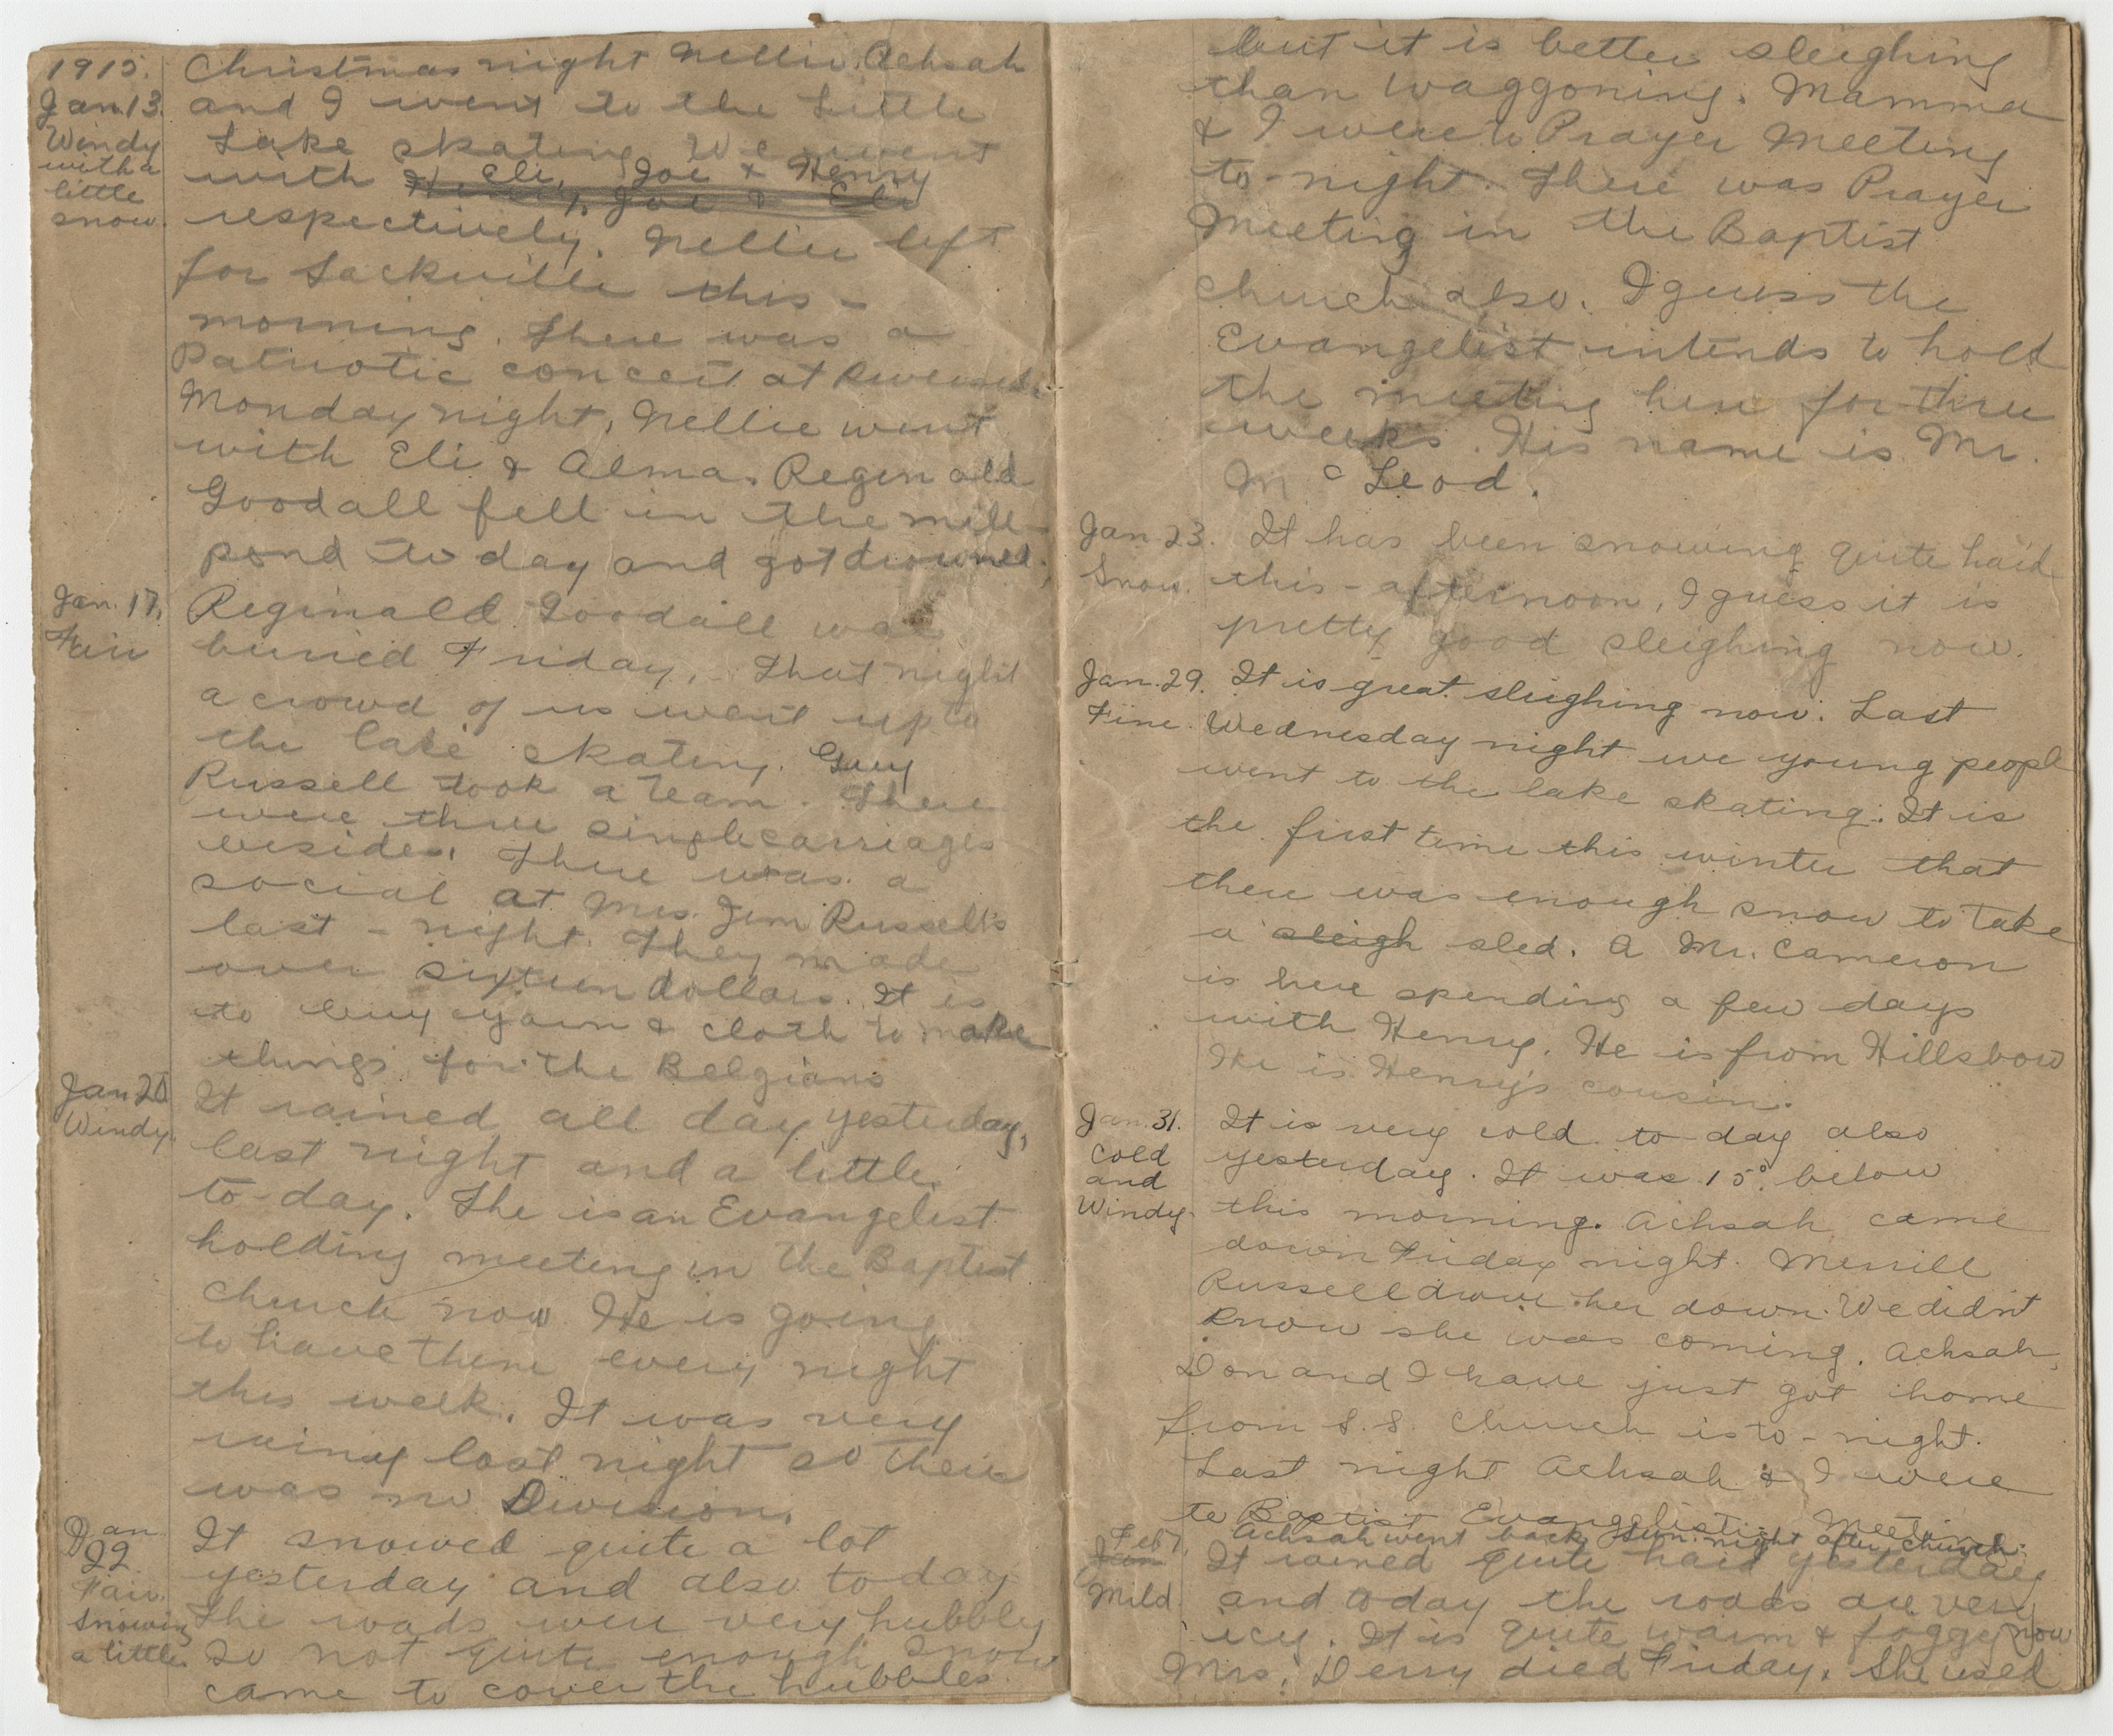 1915.
Jan. 13.
Windy
with a
little
snow.
Christmas night Nellie, Achsah
and I went to the Little
Lake skating. We went
with Eli, Joe & Henry
Henry, Joe & Eli
respectively. Nellie left
for Sackville this-
morning. There was a
Patriotic concert at
Monday night, Nellie went
with Eli & Alma. Reginald
Goodall fell in the mill-
pond to day and got drowned.
Jan. 17.
Fair
Reginald Goodall was
buried Friday. That night
a crowd of us went up to
the lake skating. Guy
Russell took a team. There
were three single carriages
besides. There was a
social at Mrs. Jim Russell's
last-night. They made
over sixteen dollars. It is
to buy yarn & cloth to make
things for the Belgians
Jan 20
Windy.
It rained all day yesterday,
last night and a little
to-day. The is an Evangelist
holding meeting in the Baptist
church now. He is going
to have them every night
this week. It was very
rainy last night so there
was no Division.
Jan
22
Fair.
Snowing
a little.
It snowed quite a lot
yesterday and also to day
The roads were very hubbly
so not quite enough snow
came to cover the hubbles.
but it is better sleighing
than waggoning. Mamma
& I were to Prayer Meeting
to-night. There was Prayer
Meeting in the Baptist
church also. I guess the
Evangelist intends to hold
the meeting here for three
weeks. His name is Mr.
McLeod.
Jan 23.
Snow.
It has been snowing quite hard
this-afternoon, I guess it is
pretty good sleighing now.
Jan. 29.
Fine.
It is great sleighing now. Last
Wednesday night we young people
went to the lake skating. It is
the first time this winter that
there was enough snow to take
a sleigh sled. A Mr. Cameron
is here spending a few days
with Henry. He is from Hillsboro
He is Henry's cousin.
Jan. 31.
Cold
and
Windy.
It is very cold to-day also
yesterday. It was 15° below
this morning. Achsah came
down Friday night. Merrill
Russell drove her down. We didn't
know she was coming. Achsah,
Don and I have just got home
from S.S. Church is to-night.
Last night Achsah & I were
to Baptist Evangelistic Meeting.
Achsah went back Sun. night after church.
Feb 7.
Jan
Mild
It rained quite hard yesterday
and today the roads are very
icy. It is quite warm & foggy now
Mrs. Derry died Friday. She used